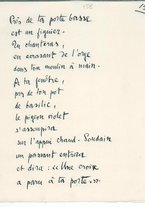 158
Près de ta porte basse
est un figuier.
Tu chanteras,
en écrasant de l'orge
dans ton moulin à main.
A ta fenêtre,
près de ton pot
de basilic,
le pigeon violet
s'assoupira
sur l'appui chaud. Soudain
un passant entrera
et dira : « Une croix
a paru à ta porte. »